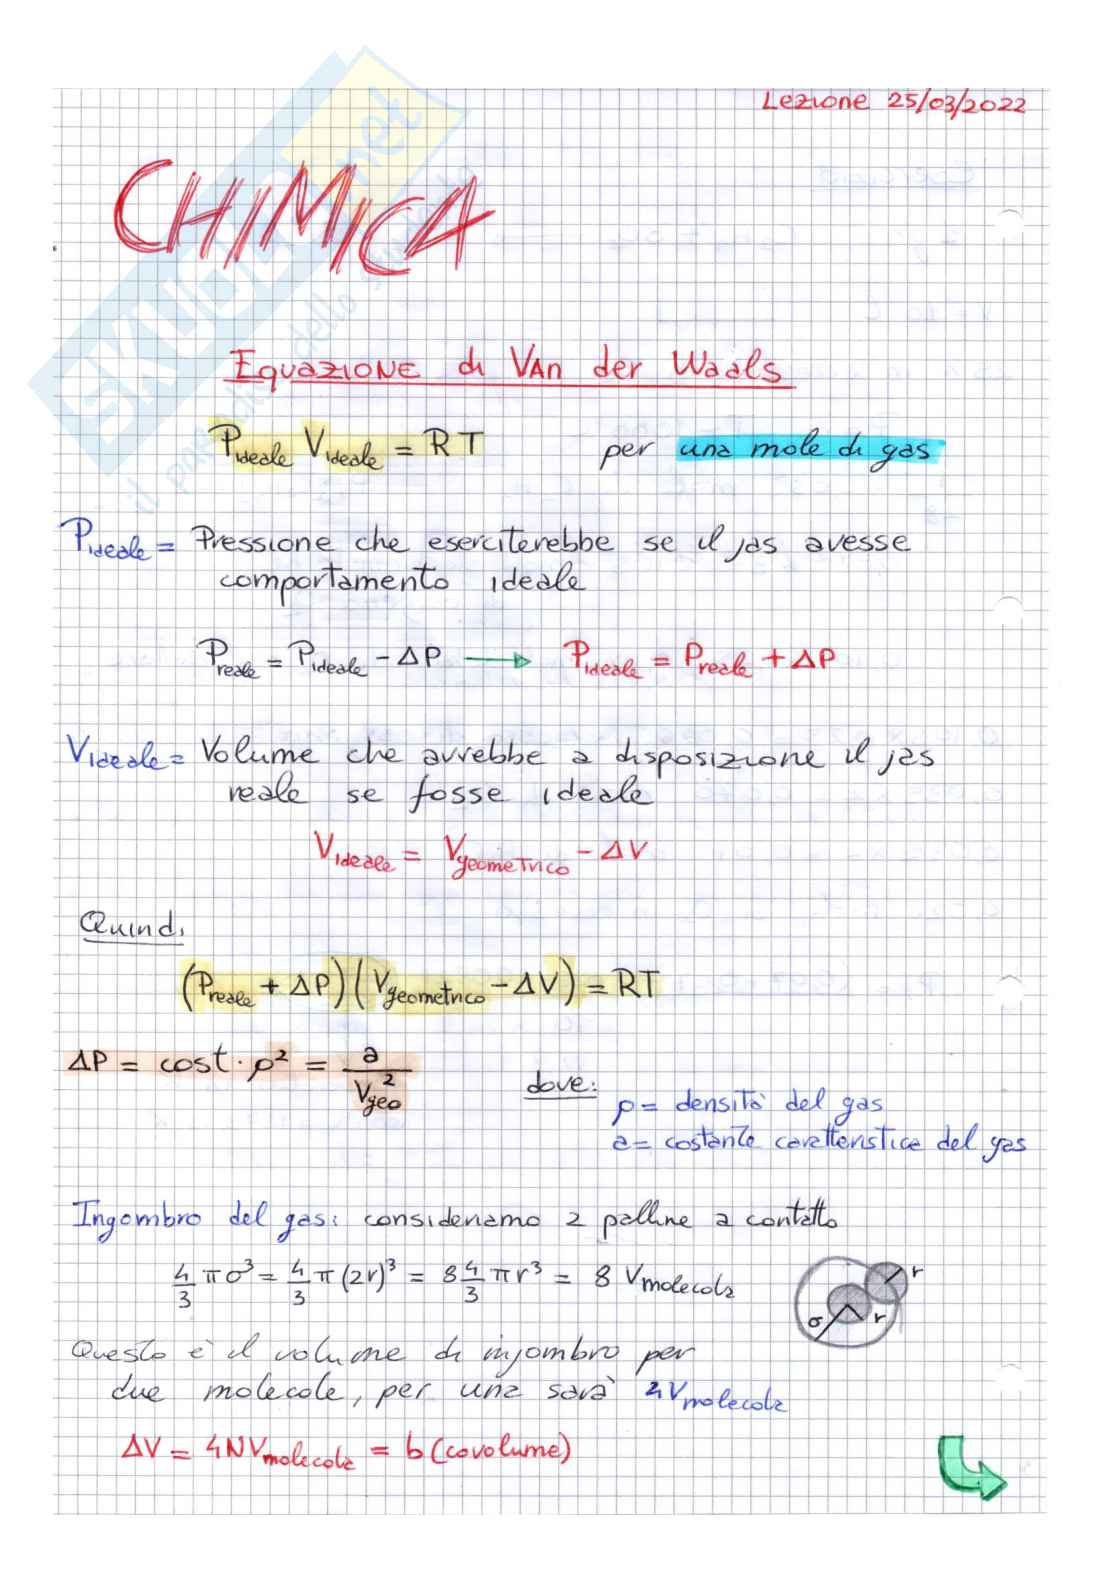 Lezione 25/03/2022
CHIMICA
Equazione di Van der Waals
P_ideale V_ideale = RT per una mole di gas
P_ideale = Pressione che eserciterebbe se il gas avesse
comportamento ideale
P_reale = P_ideale - ΔP → P_ideale = P_reale + ΔP
V_ideale = Volume che avrebbe a disposizione il gas
reale se fosse ideale
V_ideale = V_geometrico - ΔV
Quindi
(P_reale + ΔP)(V_geometrico - ΔV) = RT
ΔP = cost · ρ² = a / V_geo² dove:
ρ = densità del gas
a = costante caratteristica del gas
Ingombro del gas: consideriamo 2 palline a contatto
4/3 π σ³ = 4/3 π (2r)³ = 8 4/3 π r³ = 8 V_molecola
r
σ r
Questo è il volume di ingombro per
due molecole, per una sarà 4V_molecola
ΔV = 4NV_molecola = b (covolume)
SKUOLA.net
il paradiso dello studente